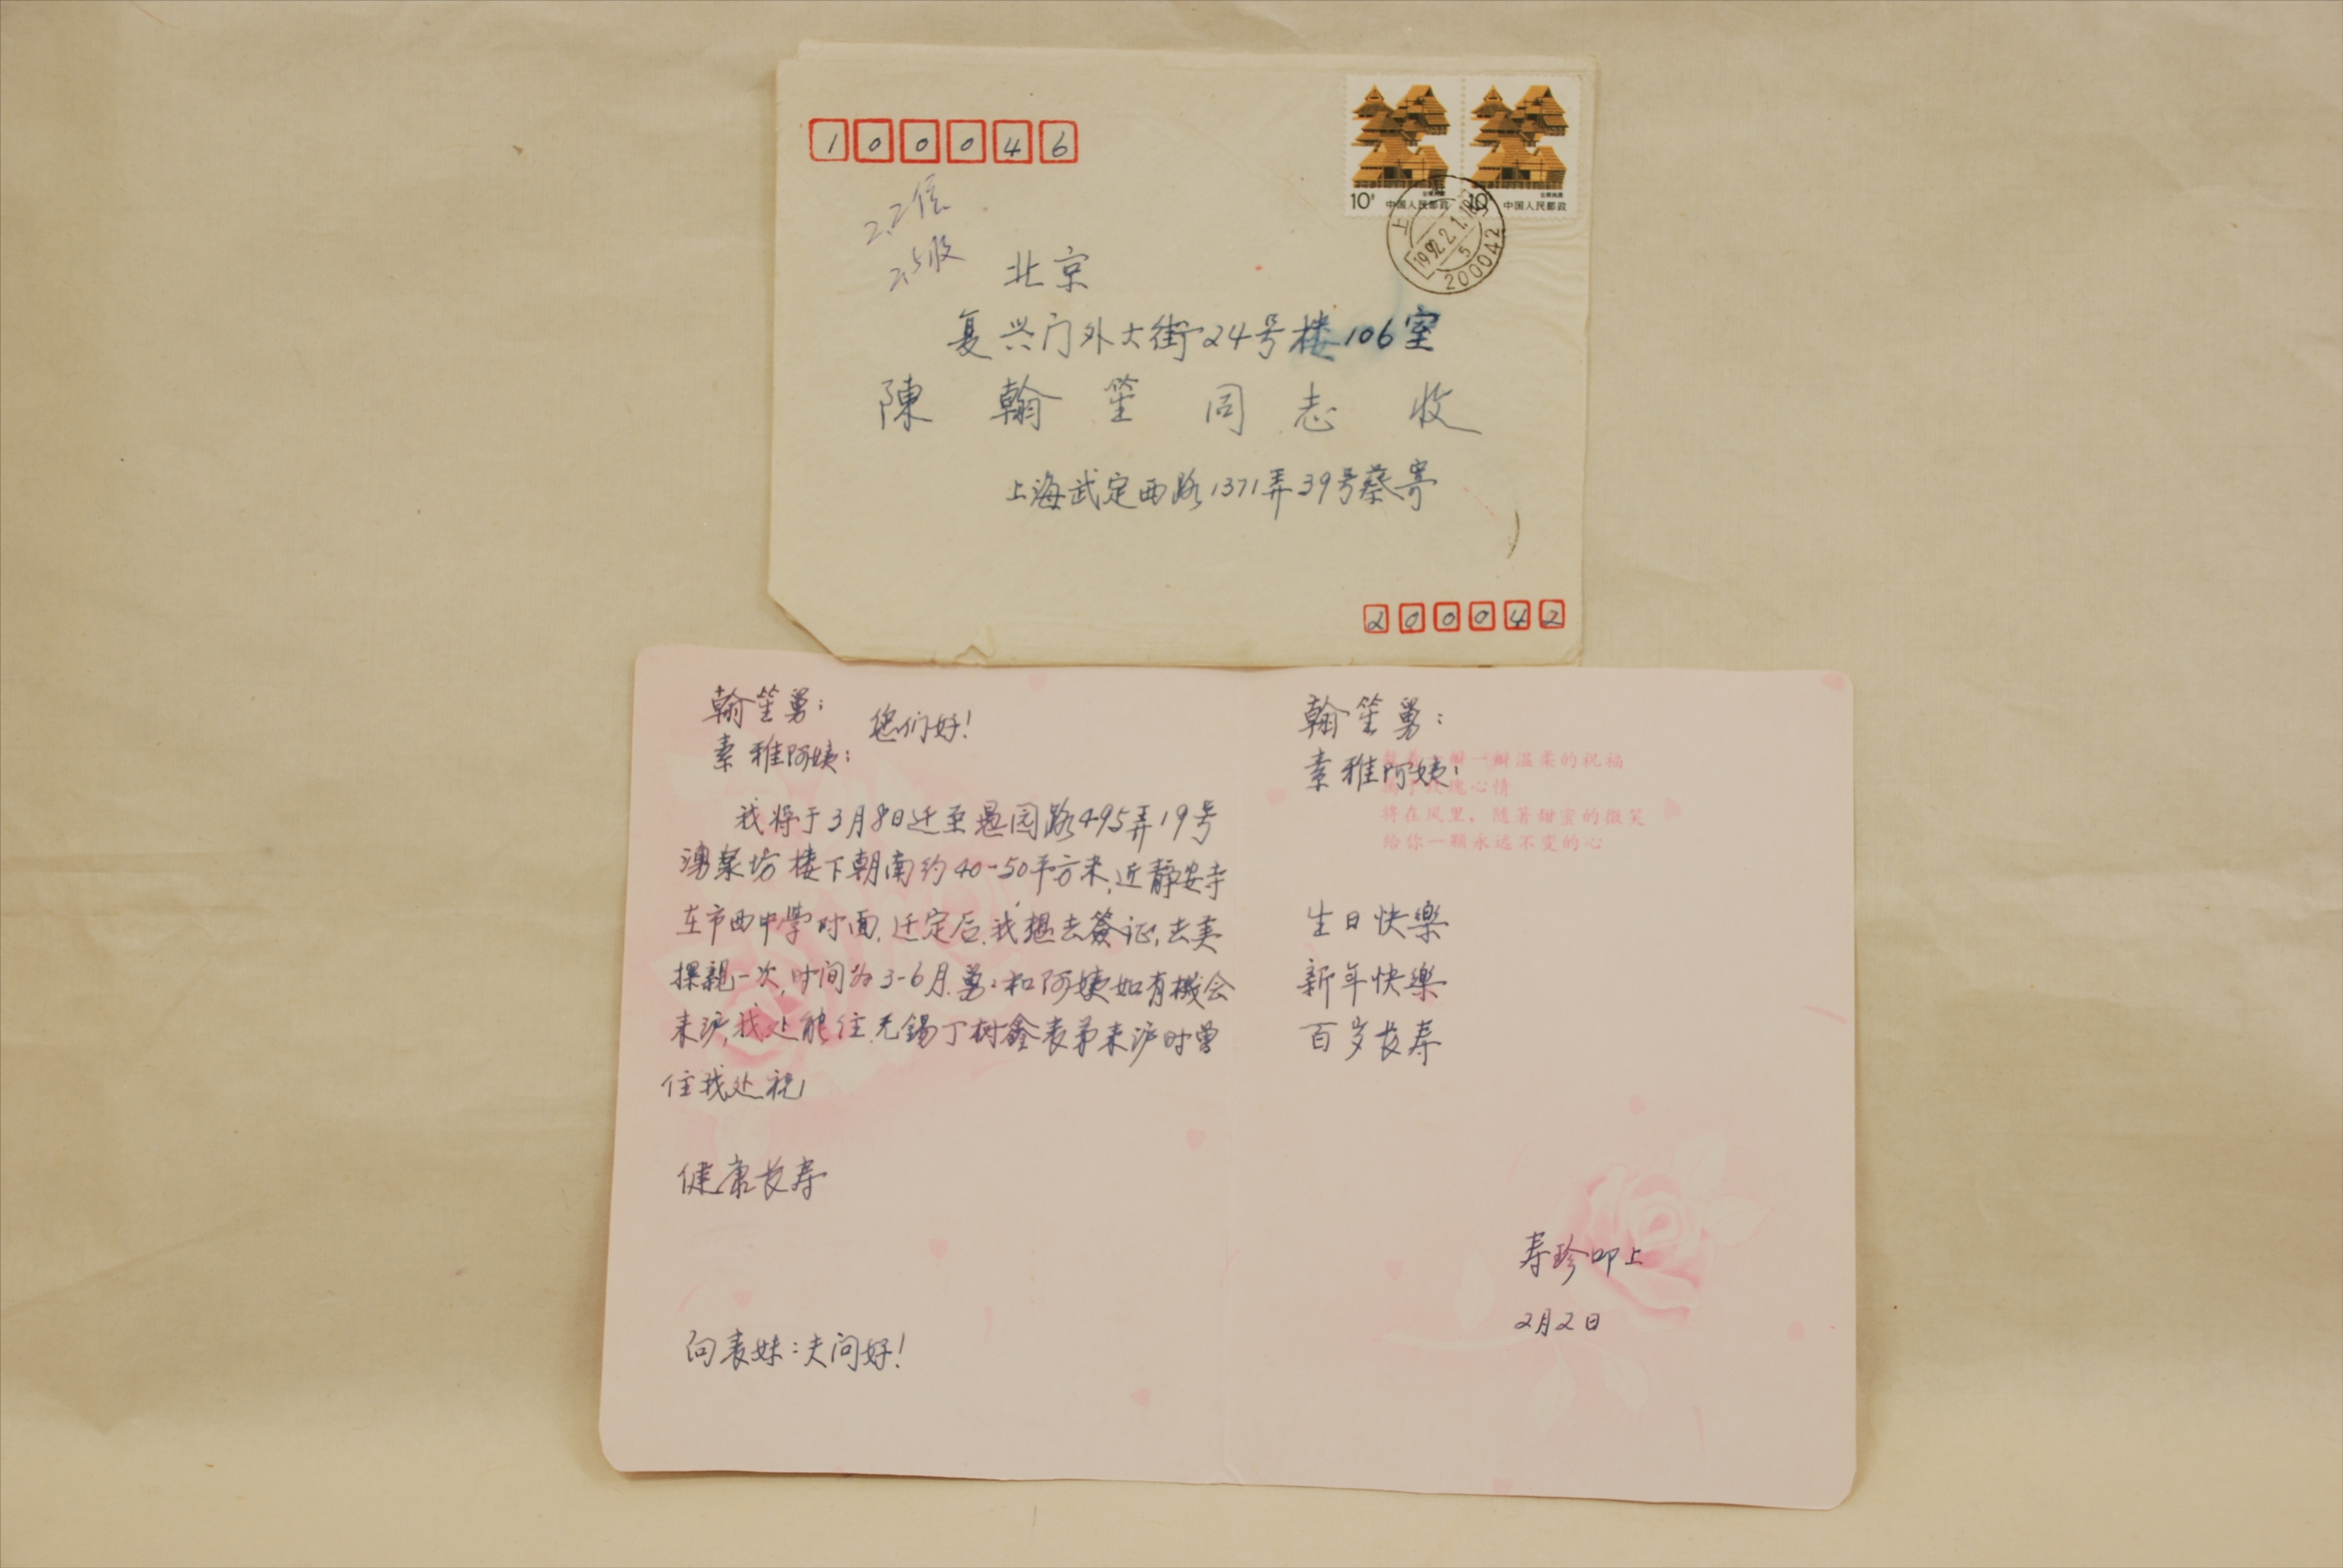 100046
10分 中国人民邮政
10分 中国人民邮政
上
1992.2.1.18
5
200042
2.2信
2.5收
北京
复兴门外大街24号楼106室
陳翰笙同志收
上海武定西路1371弄39号蔡寄
200042
翰笙舅:
素雅阿姨:
您们好!
我将于3月8日迁至愚园路495弄19号
湧泉坊楼下朝南约40-50平方米,近静安寺
在市西中学对面.迁定后.我想去簽证,去美
探親一次,时间为3-6月.舅:和阿姨如有機会
来沪,我处能住.无锡丁树鑫表弟来沪时曾
住我处祝
健康长寿
向表妹:夫问好!
翰笙舅:
素雅阿姨:
一瓣温柔的祝福
玫瑰心情
将在风里,随著甜蜜的微笑
给你一颗永远不变的心
生日快樂
新年快樂
百岁长寿
寿珍叩上
2月2日